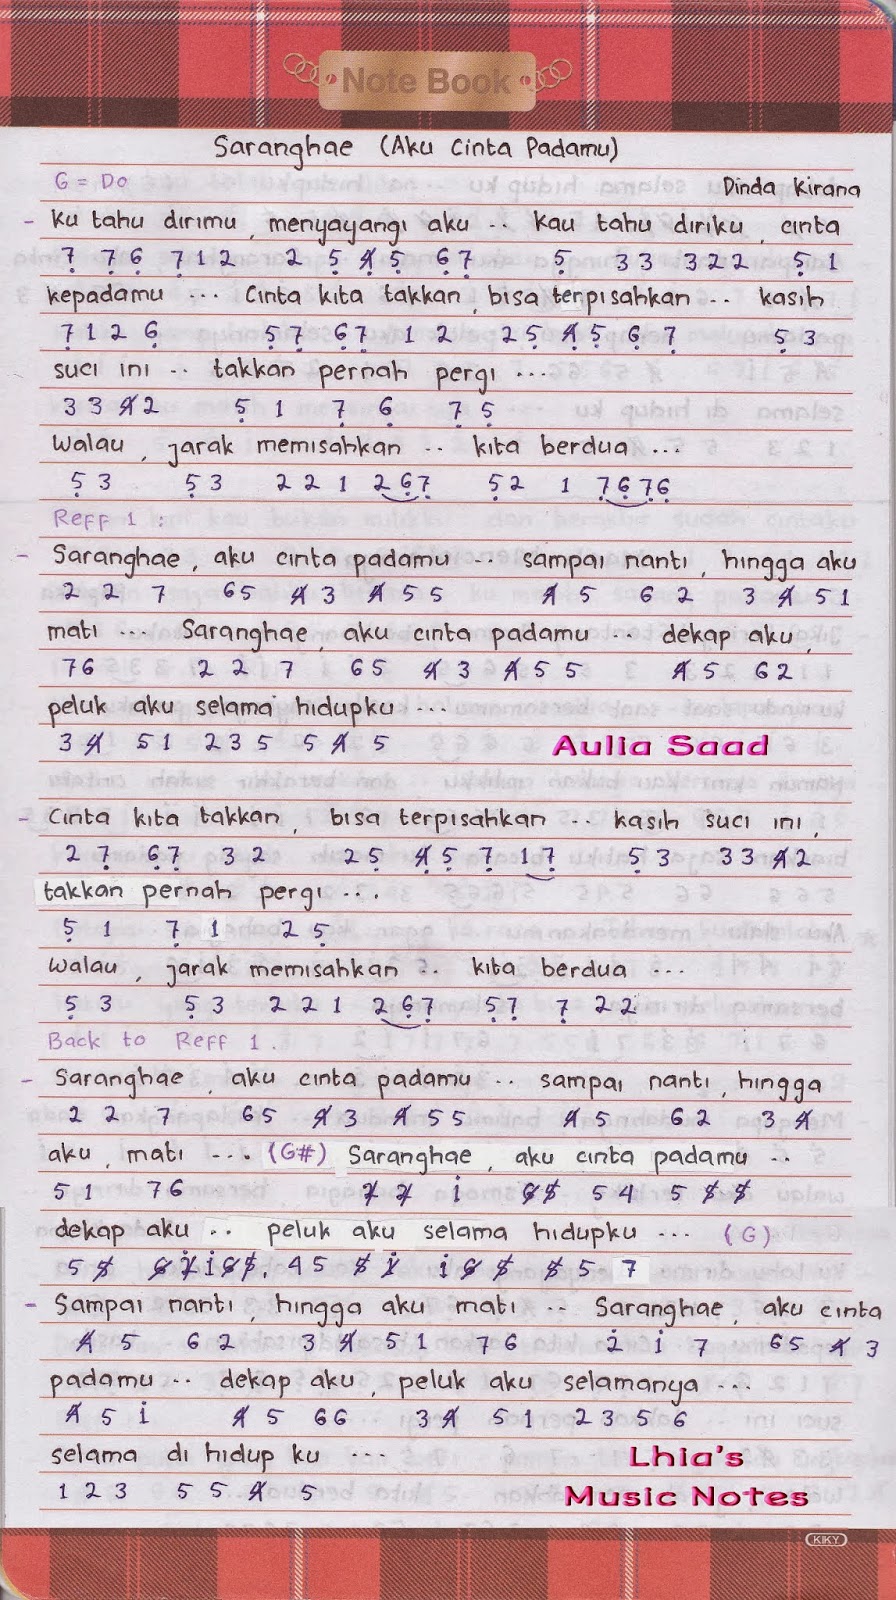 Note Book
Saranghae (Aku Cinta Padamu)
G = Do Dinda Kirana
- Ku tahu dirimu, menyayangi aku .. Kau tahu diriku, cinta
7 7 6 7 1 2 2 5 4 5 6 7 5 3 3 3 2 2 5 1
kepadamu ... Cinta kita takkan, bisa terpisahkan .. kasih
7 1 2 6 5 7 6 7 1 2 2 5 4 5 6 7 5 3
suci ini .. takkan pernah pergi ...
3 3 4 2 5 1 7 6 7 5
Walau, jarak memisahkan .. kita berdua ...
5 3 5 3 2 2 1 2 6 7 5 2 1 7 6 7 6
Reff 1 :
- Saranghae, aku cinta padamu ... sampai nanti, hingga aku
2 2 7 6 5 4 3 4 5 5 4 5 6 2 3 4 5 1
mati ... Saranghae, aku cinta padamu ... dekap aku,
7 6 2 2 7 6 5 4 3 4 5 5 4 5 6 2
peluk aku selama hidupku ...
3 4 5 1 2 3 5 5 4 5 Aulia Saad
- Cinta kita takkan, bisa terpisahkan ... kasih suci ini,
2 7 6 7 3 2 2 5 4 5 7 1 7 5 3 3 3 4 2
takkan pernah pergi ...
5 1 7 1 2 5
Walau, jarak memisahkan .. kita berdua ...
5 3 5 3 2 2 1 2 6 7 5 7 7 2 2
Back to Reff 1.
- Saranghae, aku cinta padamu .. sampai nanti, hingga
2 2 7 6 5 4 3 4 5 5 4 5 6 2 3 4
aku, mati ... (G#) Saranghae, aku cinta padamu ..
5 1 7 6 2 2 1 6 5 5 4 5 5 5
dekap aku .. peluk aku selama hidupku ... (G)
5 5 6 2 1 6 5. 4 5 5 1 1 6 5 5 5 7
- Sampai nanti, hingga aku mati .. Saranghae, aku cinta
4 5 6 2 3 4 5 1 7 6 2 1 7 6 5 4 3
padamu .. dekap aku, peluk aku selamanya ...
4 5 1 4 5 6 6 3 4 5 1 2 3 5 6
selama di hidup ku ...
1 2 3 5 5 4 5
Lhia's
Music Notes
KIKY